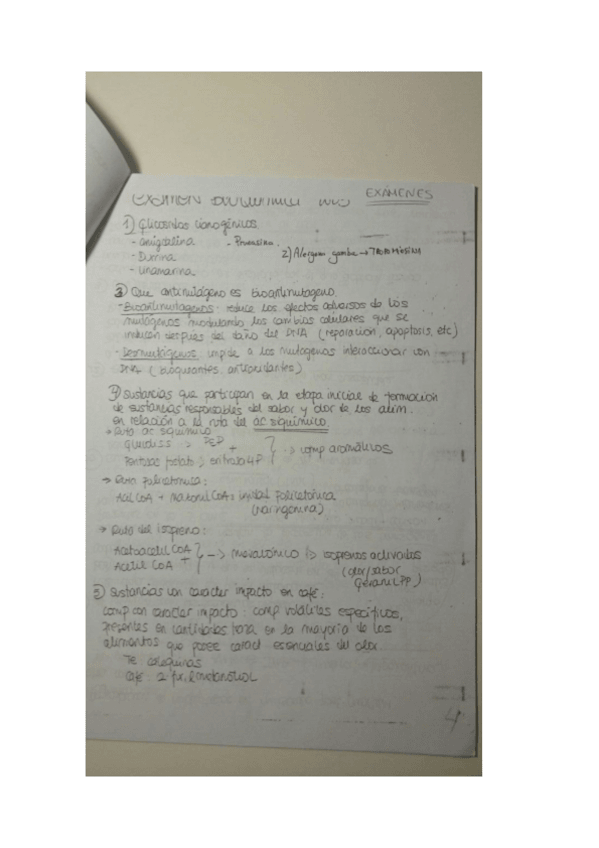 EXÁMENES
EXAMEN
1) Glicósidos cianogénicos
- amigdalina - Prunasina
2) Alergeno gamba → TROPOMIOSINA
- Durrina
- Linamarina
3) Que antimutágeno es bioantimutageno
- Bioantimutagenos: reduce los efectos adversos de los
mutágenos modulando los cambios celulares que se
inducen despues del daño del DNA (reparacion, apoptosis, etc)
- Desmutágenos: impide a los mutagenos interaccionar con
DNA (bloqueantes, antioxidantes)
Sustancias que participan en la etapa inicial de formación
de sustancias responsables del sabor y olor de los alim.
en relación a la ruta del ac siquimico.
→ Ruta ac siquimico
Glucolisis → PEP +
Pentosas fosfato → eritrosa 4P } → comp aromáticos
→ Ruta Policetónica:
Acil CoA + Malonil CoA = unidad Policetónica
(naringenina)
→ Ruta del isopreno:
Acetoacetil CoA
+
Acetil CoA } → mevalónico → isoprenos activados
(olor/sabor
Geranil PP)
5) Sustancias con caracter impacto en café:
comp con caracter impacto: comp volátiles específicos,
presentes en cantidades traza en la mayoría de los
alimentos que posee caract esenciales del olor.
Te
Café 2-
4